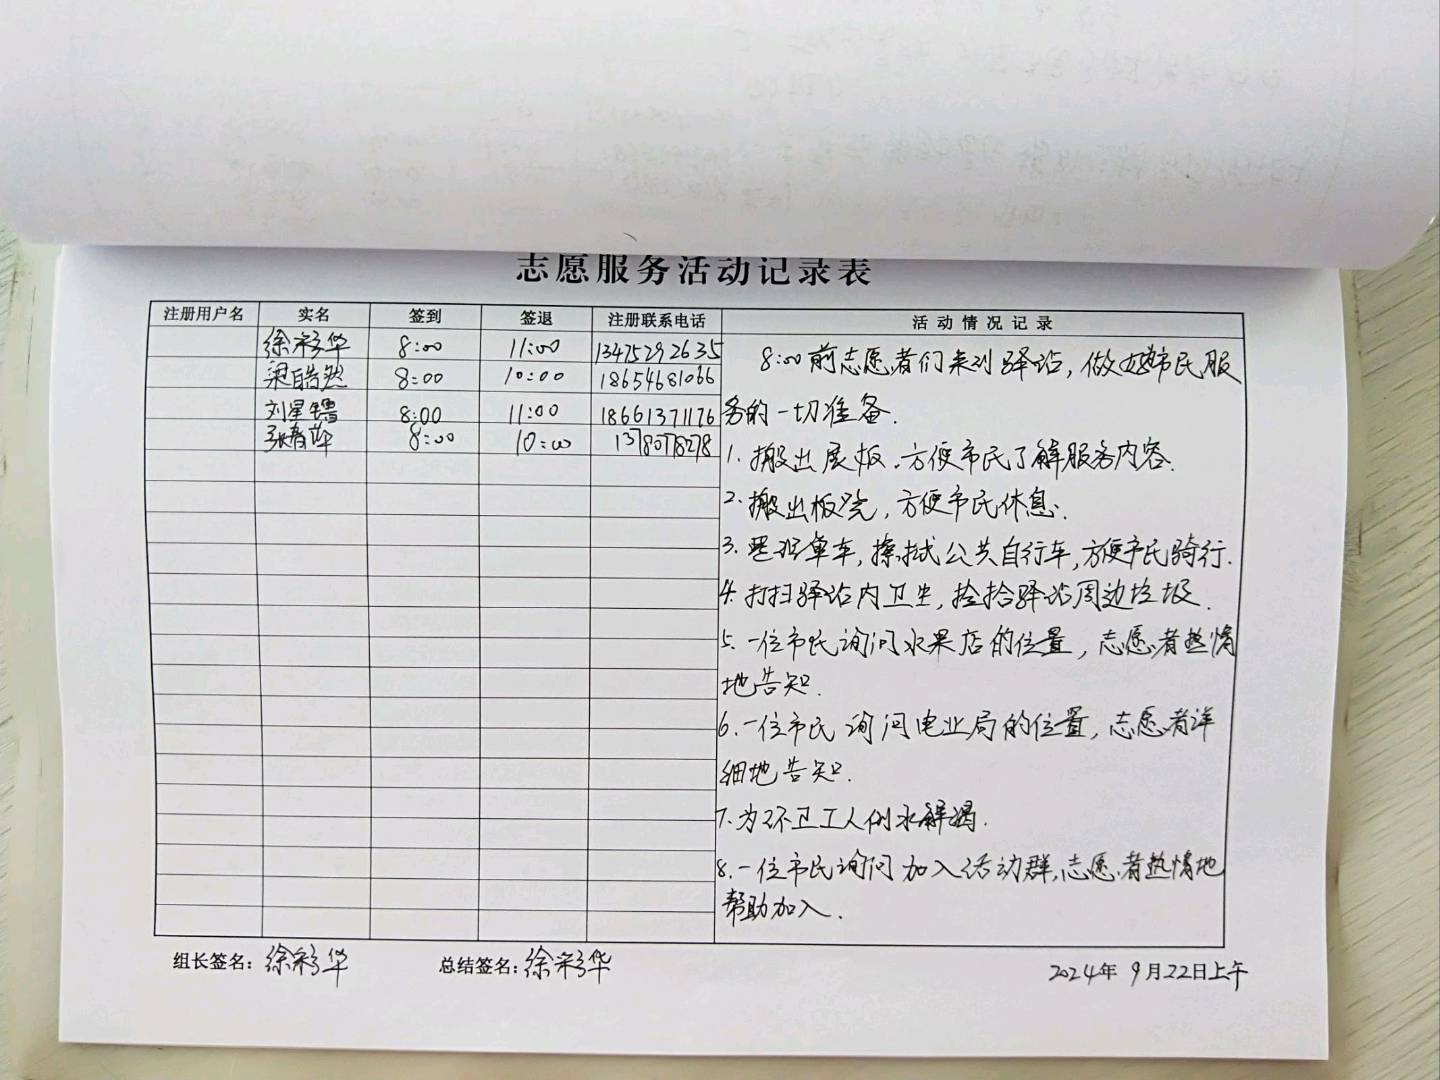 志愿服务活动记录表
注册用户名 实名 签到 签退 注册联系电话 活动情况记录
徐彩华 8:00 11:00 13475292635
梁皓然 8:00 10:00 18654681066
刘星 8:00 11:00 18661371176
张春萍 8:00 10:00 13780778278
8:00前志愿者们来到驿站，做好市民服
务的一切准备.
1. 搬出展板.方便市民了解服务内容.
2. 搬出板凳，方便市民休息.
3. 单车，擦拭公共自行车，方便市民骑行.
4. 打扫驿站内卫生，捡拾驿站周边垃圾.
5. 一位市民询问水果店的位置，志愿者热情
地告知.
6. 一位市民询问电业局的位置，志愿者详
细地告知.
7. 为环卫工人倒水解渴.
8. 一位市民询问加入活动群，志愿者热情地
帮助加入.
组长签名：徐彩华 总结签名：徐彩华 2024年 9月22日上午